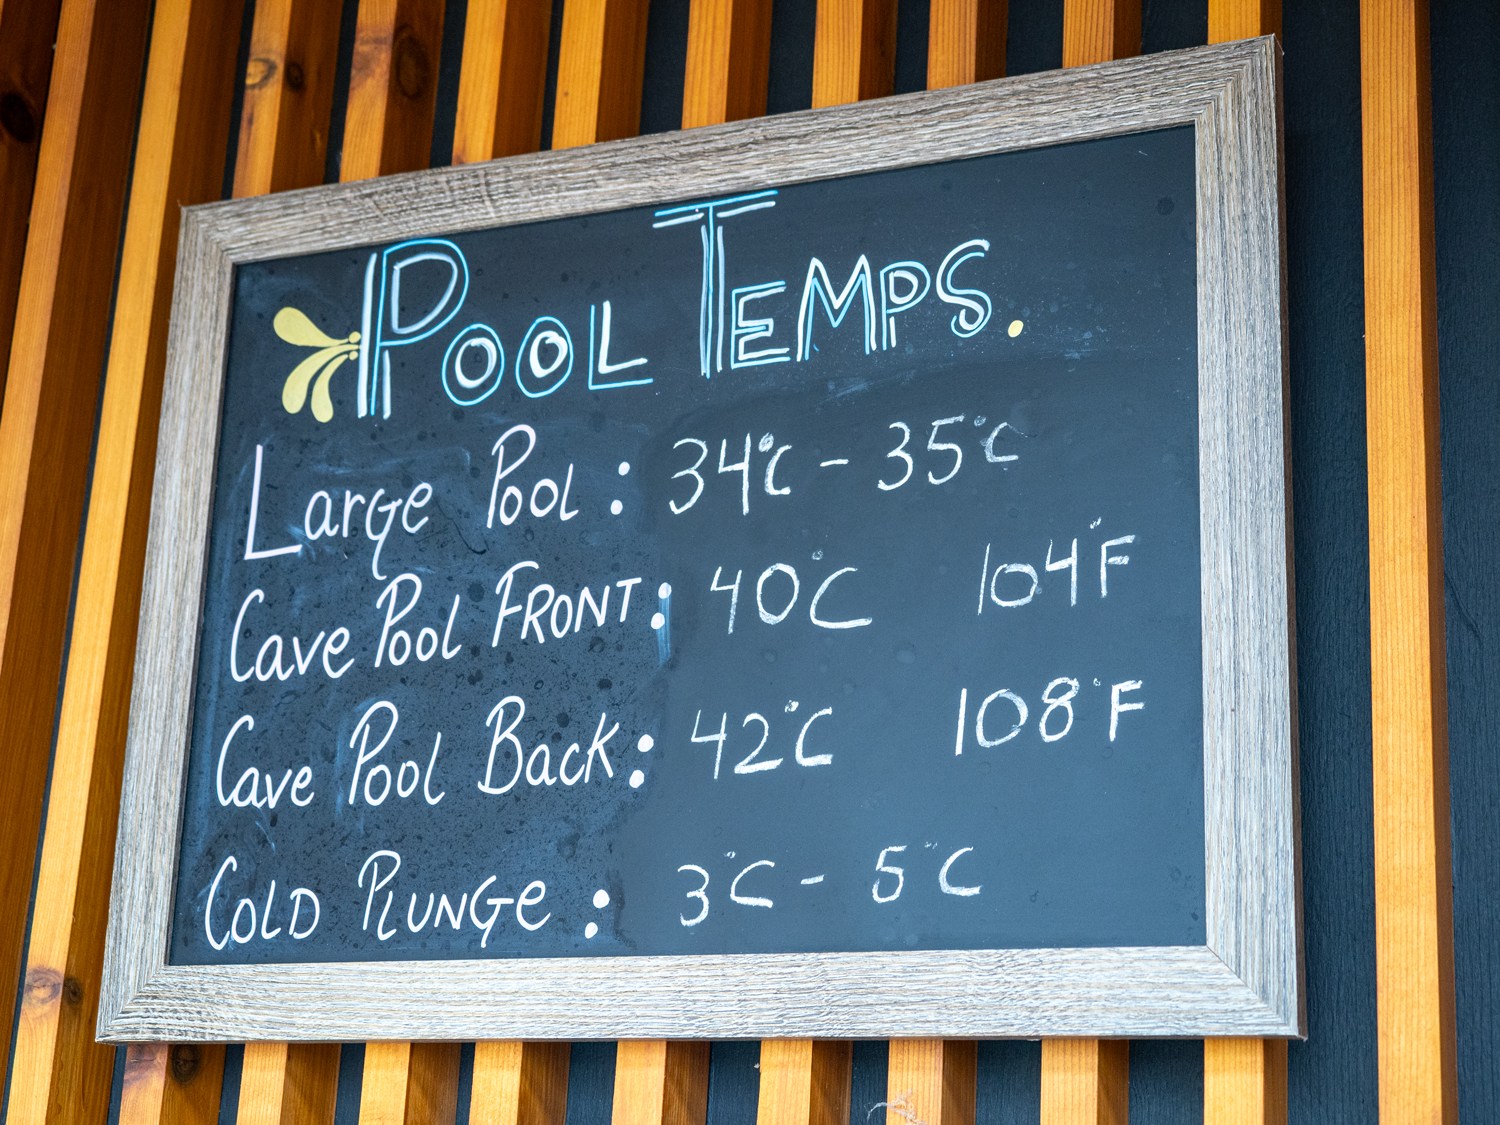 Pool Temps.
Large Pool: 34°C - 35°C
Cave Pool FRONT: 40°C 104°F
Cave Pool Back: 42°C 108°F
COLD PLUNGe: 3°C - 5°C